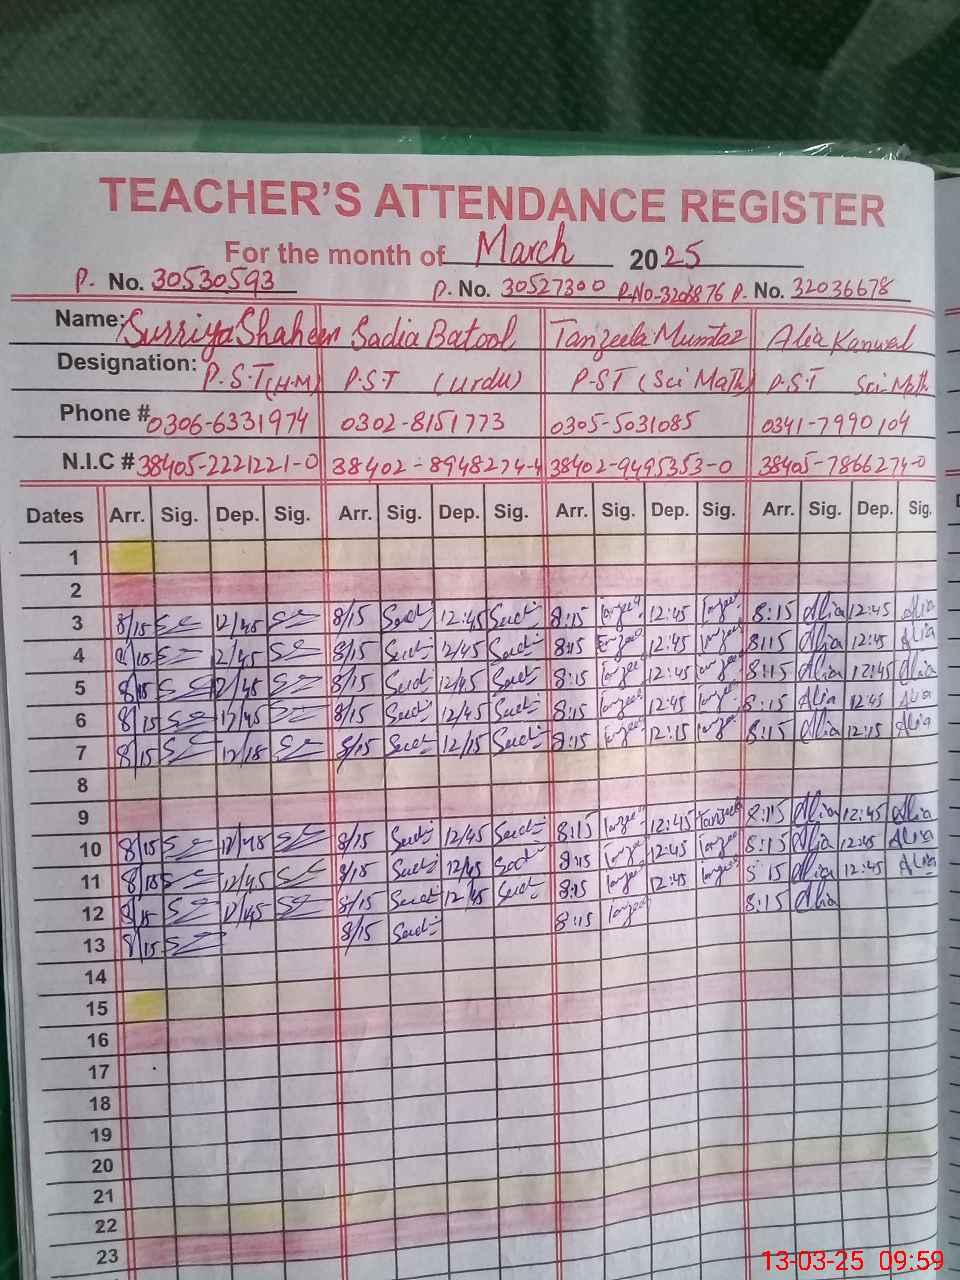 TEACHER'S ATTENDANCE REGISTER
For the month of March 2025
P. No. 30530593 P. No. 30527300 P.No-3206876 P. No. 32036678
Name: Surriya Shaheen Sadia Batool Tanzeela Mumtaz Alia Kanwal
Designation: P.S.T (H.M) P.S.T (Urdu) P.ST (Sci Math) P.S.T Sci-Math
Phone # 0306-6331974 0302-8151773 0305-5031085 0341-7990104
N.I.C # 38405-2221221-0 38402-8948274-4 38402-9495353-0 38405-7866274-0
Dates Arr. Sig. Dep. Sig. Arr. Sig. Dep. Sig. Arr. Sig. Dep. Sig. Arr. Sig. Dep. Sig.
1
2
3 8/15 12/45 8/15 12:45 8:15 12:45 8:15 Alia 12:45 Alia
4 8/15 12/45 8/15 12/45 8:15 12:45 8:15 Alia 12:45 Alia
5 8/15 12/45 8/15 12/45 8:15 12:45 8:15 Alia 12:45 Alia
6 8/15 12/45 8/15 12/45 8:15 12:45 8:15 Alia 12:45 Alia
7 8/15 12/15 8/15 12/15 8:15 12:15 8:15 Alia 12:15 Alia
8
9
10 8/15 12/45 8/15 12/45 8:15 12:45 Tanzeela 8:15 Alia 12:45 Alia
11 8/15 12/45 8/15 12/45 8:15 12:45 8:15 Alia 12:45 Alia
12 8/15 12/45 8/15 12/45 8:15 12:45 8:15 Alia 12:45 Alia
13 8/15 8/15 8:15 8:15 Alia
14
15
16
17
18
19
20
21
22
23
13-03-25 09:59